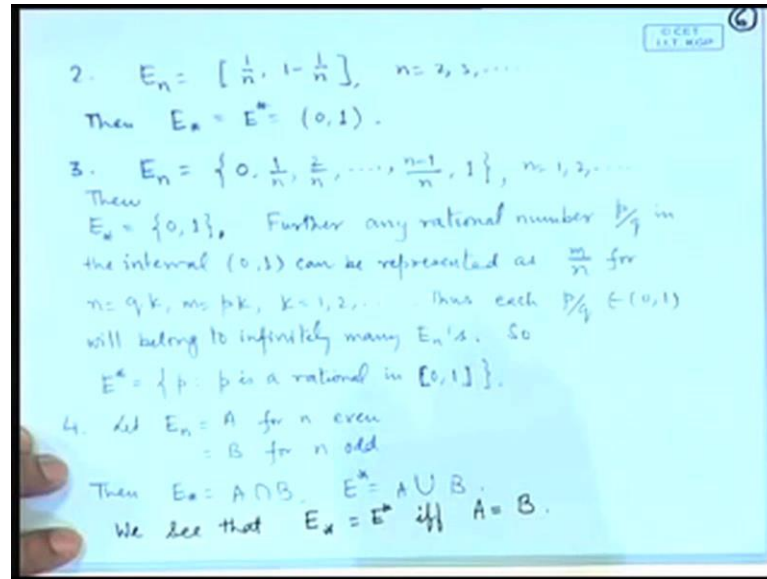 6
CCET
I.I.T. KGP
2. Eₙ = [1/n, 1 - 1/n], n = 2, 3, ....
Then E_* = E^* = (0, 1).
3. Eₙ = {0, 1/n, 2/n, ...., (n-1)/n, 1}, n = 1, 2, ....
Then
E_* = {0, 1}. Further any rational number p/q in
the interval (0, 1) can be represented as m/n for
n = qk, m = pk, k = 1, 2, ... Thus each p/q ∈ (0, 1)
will belong to infinitely many Eₙ's. So
E^* = {p : p is a rational in [0, 1]}.
4. Let Eₙ = A for n even
= B for n odd
Then E_* = A ∩ B, E^* = A ∪ B.
We see that E_* = E^* iff A = B.